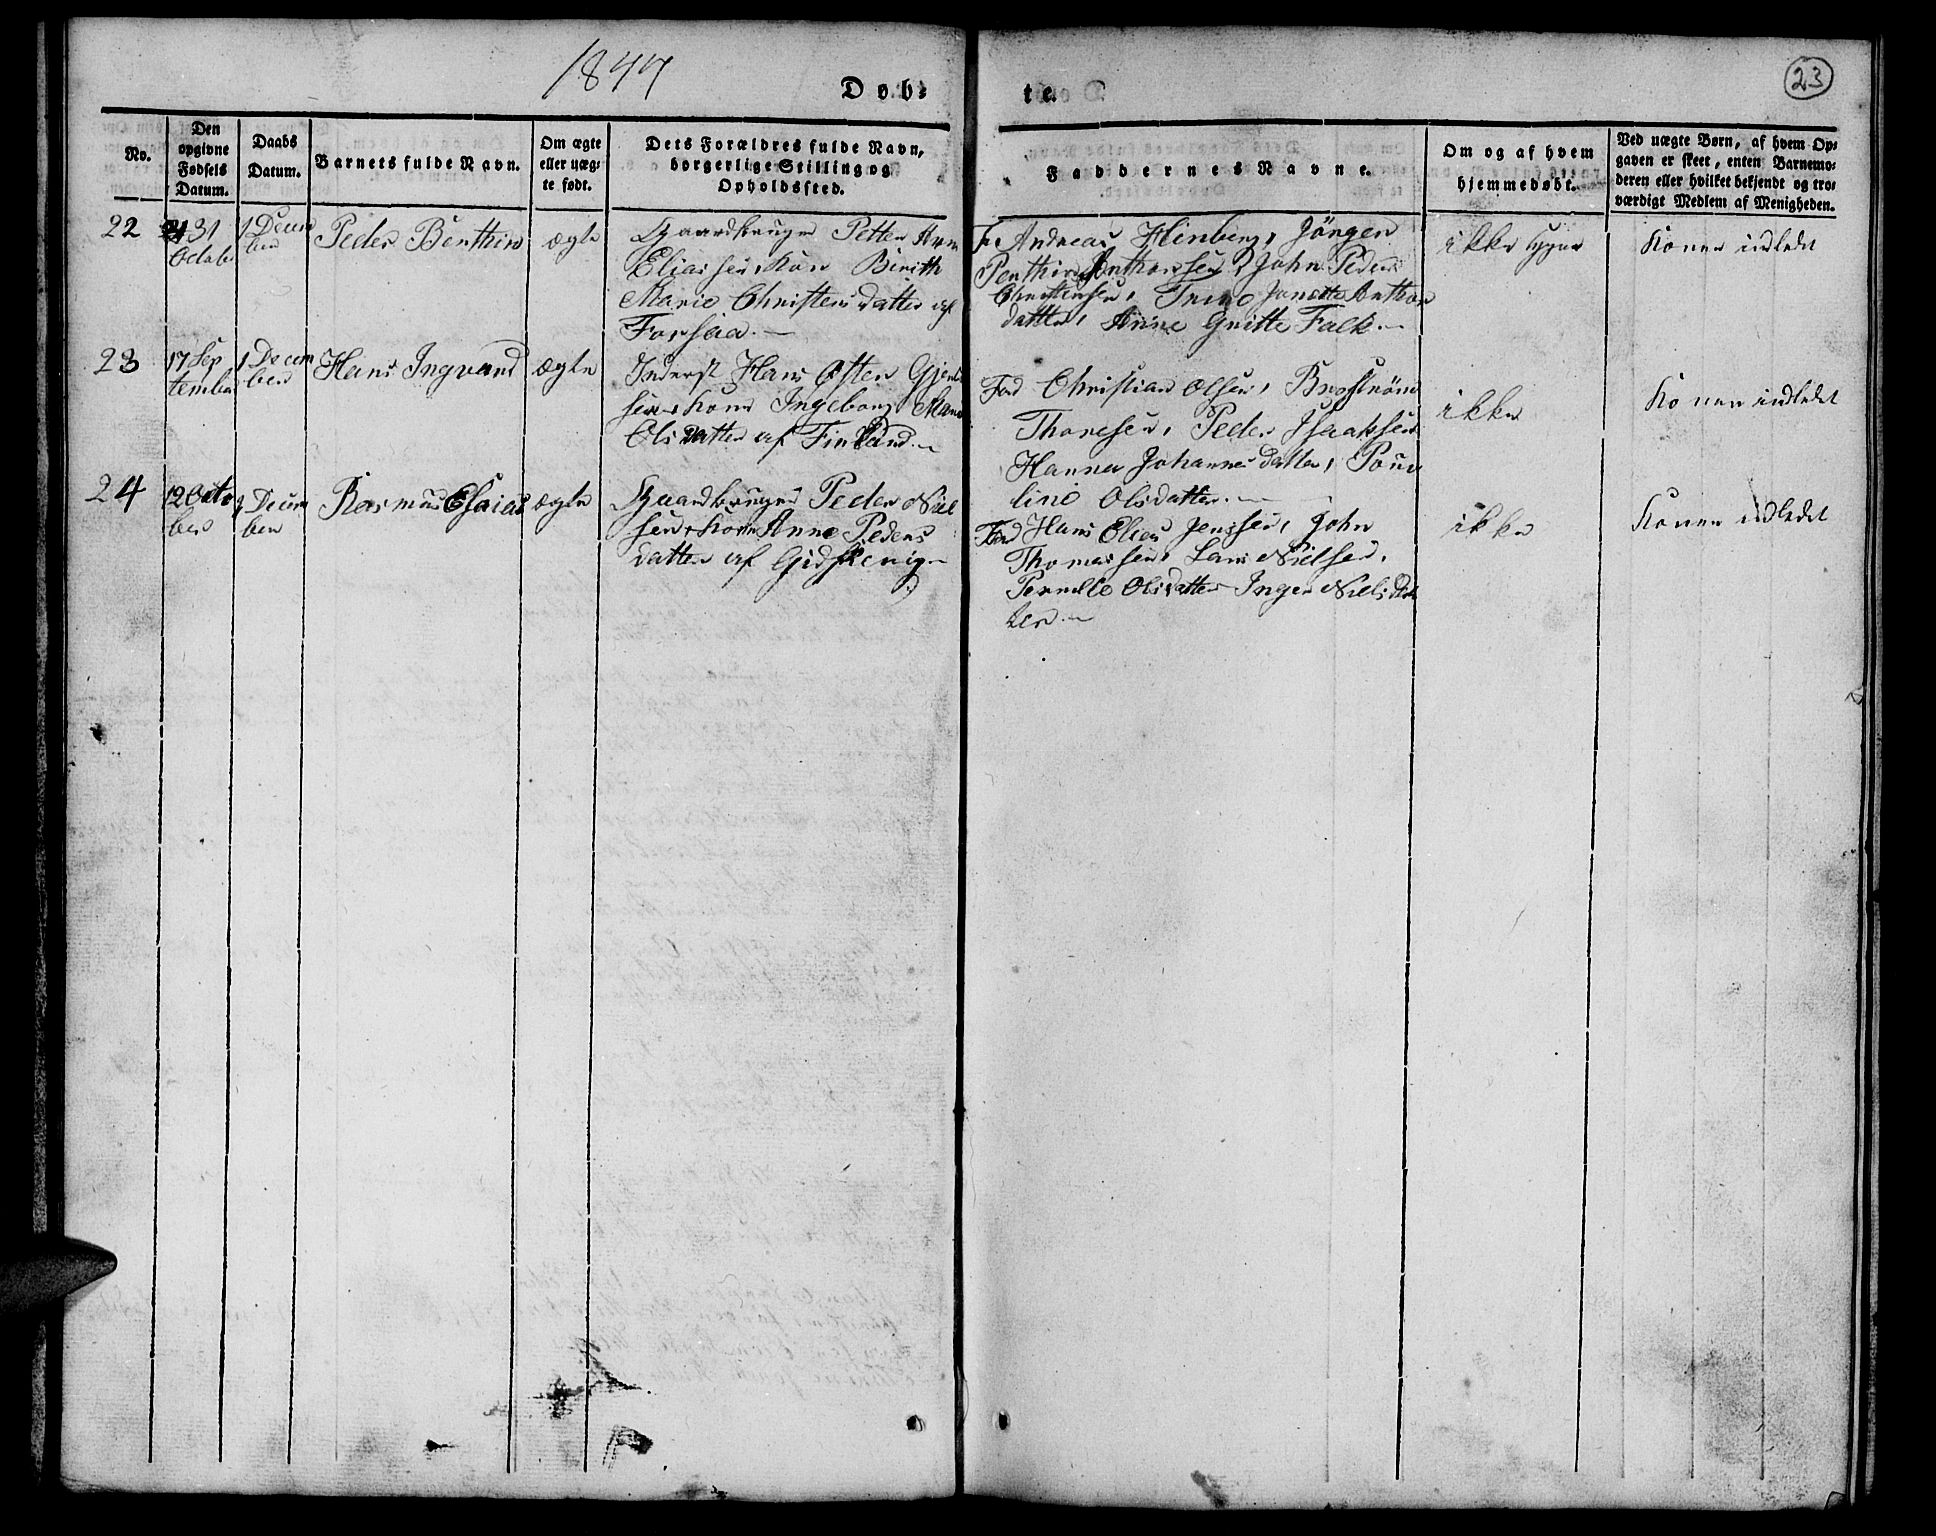 1844
23
Døb-
te.
No.
Den
opgivne
Fødsels
Datum.
Daabs
Datum.
Barnets fulde Navn.
Om ægte
eller uæg-
te født.
Dets Forældres fulde Navn,
borgerlige Stilling og
Opholdssted.
Faddernes Navne.
Om og af hvem
hjemmedøbt.
Ved uægte Børn, af hvem Op-
gaven er skeet, enten Barnemo-
deren eller hvilket bekjendt og tro-
værdigt Medlem af Menigheden.
22
31
Octob
1 Decem
ber
Peder Benthin
ægte
Gaardbruger Petter
Eliassen, Kone Birith
Marie Christens datter af
Forsaa.
Andreas Jørgen
John Peder
Christensen, Trine Anthon
datter, Anne Gritte Falk.
ikke
Konen indledet
23
17 Sep
tember
1 Decem
ber
Hans Ingvard
ægte
Inderst Hans Østen
sen Kone Ingeborg
Olsdatter af Finland.
Fad Christian Olsen,
Thoresen, Peder Isaksen
Hanna Johannes datter, Pau
line Olsdatter.
ikke
Konen indledet
24
12 Octo
ber
Decem
ber
Rasmus Esaias
ægte
Gaardbruger Peder Niel
sen, Kone Anne Peders
datter af
Fad Hans Jenssen, John
Thomassen, Lars Nielsen,
Pernille Olsdatter Inger Niels dat
ter.
ikke
Konen indledet